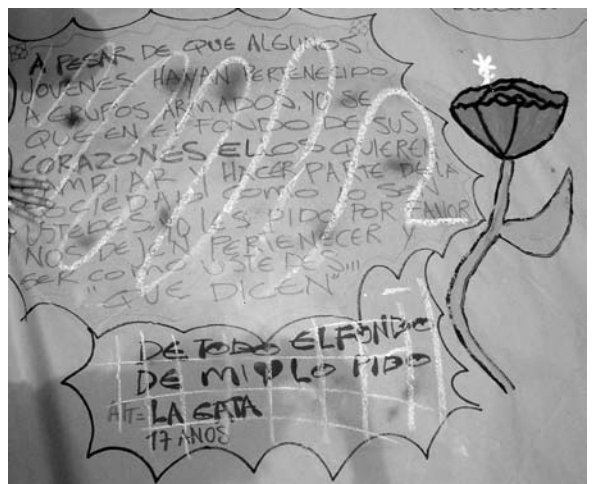 A PESAR DE QUE ALGUNOS
JOVENES HAYAN PERTENECIDO
A GRUPOS ARMADOS, YO SE
QUE EN EL FONDO DE SUS
CORAZONES ELLOS QUIEREN
CAMBIAR Y HACER PARTE DE LA
SOCIEDAD COMO LO SON
USTEDES. YO LES PIDO POR FAVOR
NOS DEJEN PERTENECER Y
SER COMO USTEDES...
"QUE DICEN"
DE TODO EL FONDO
DE MI ♥ LO PIDO
ATT= LA GATA
17 AÑOS